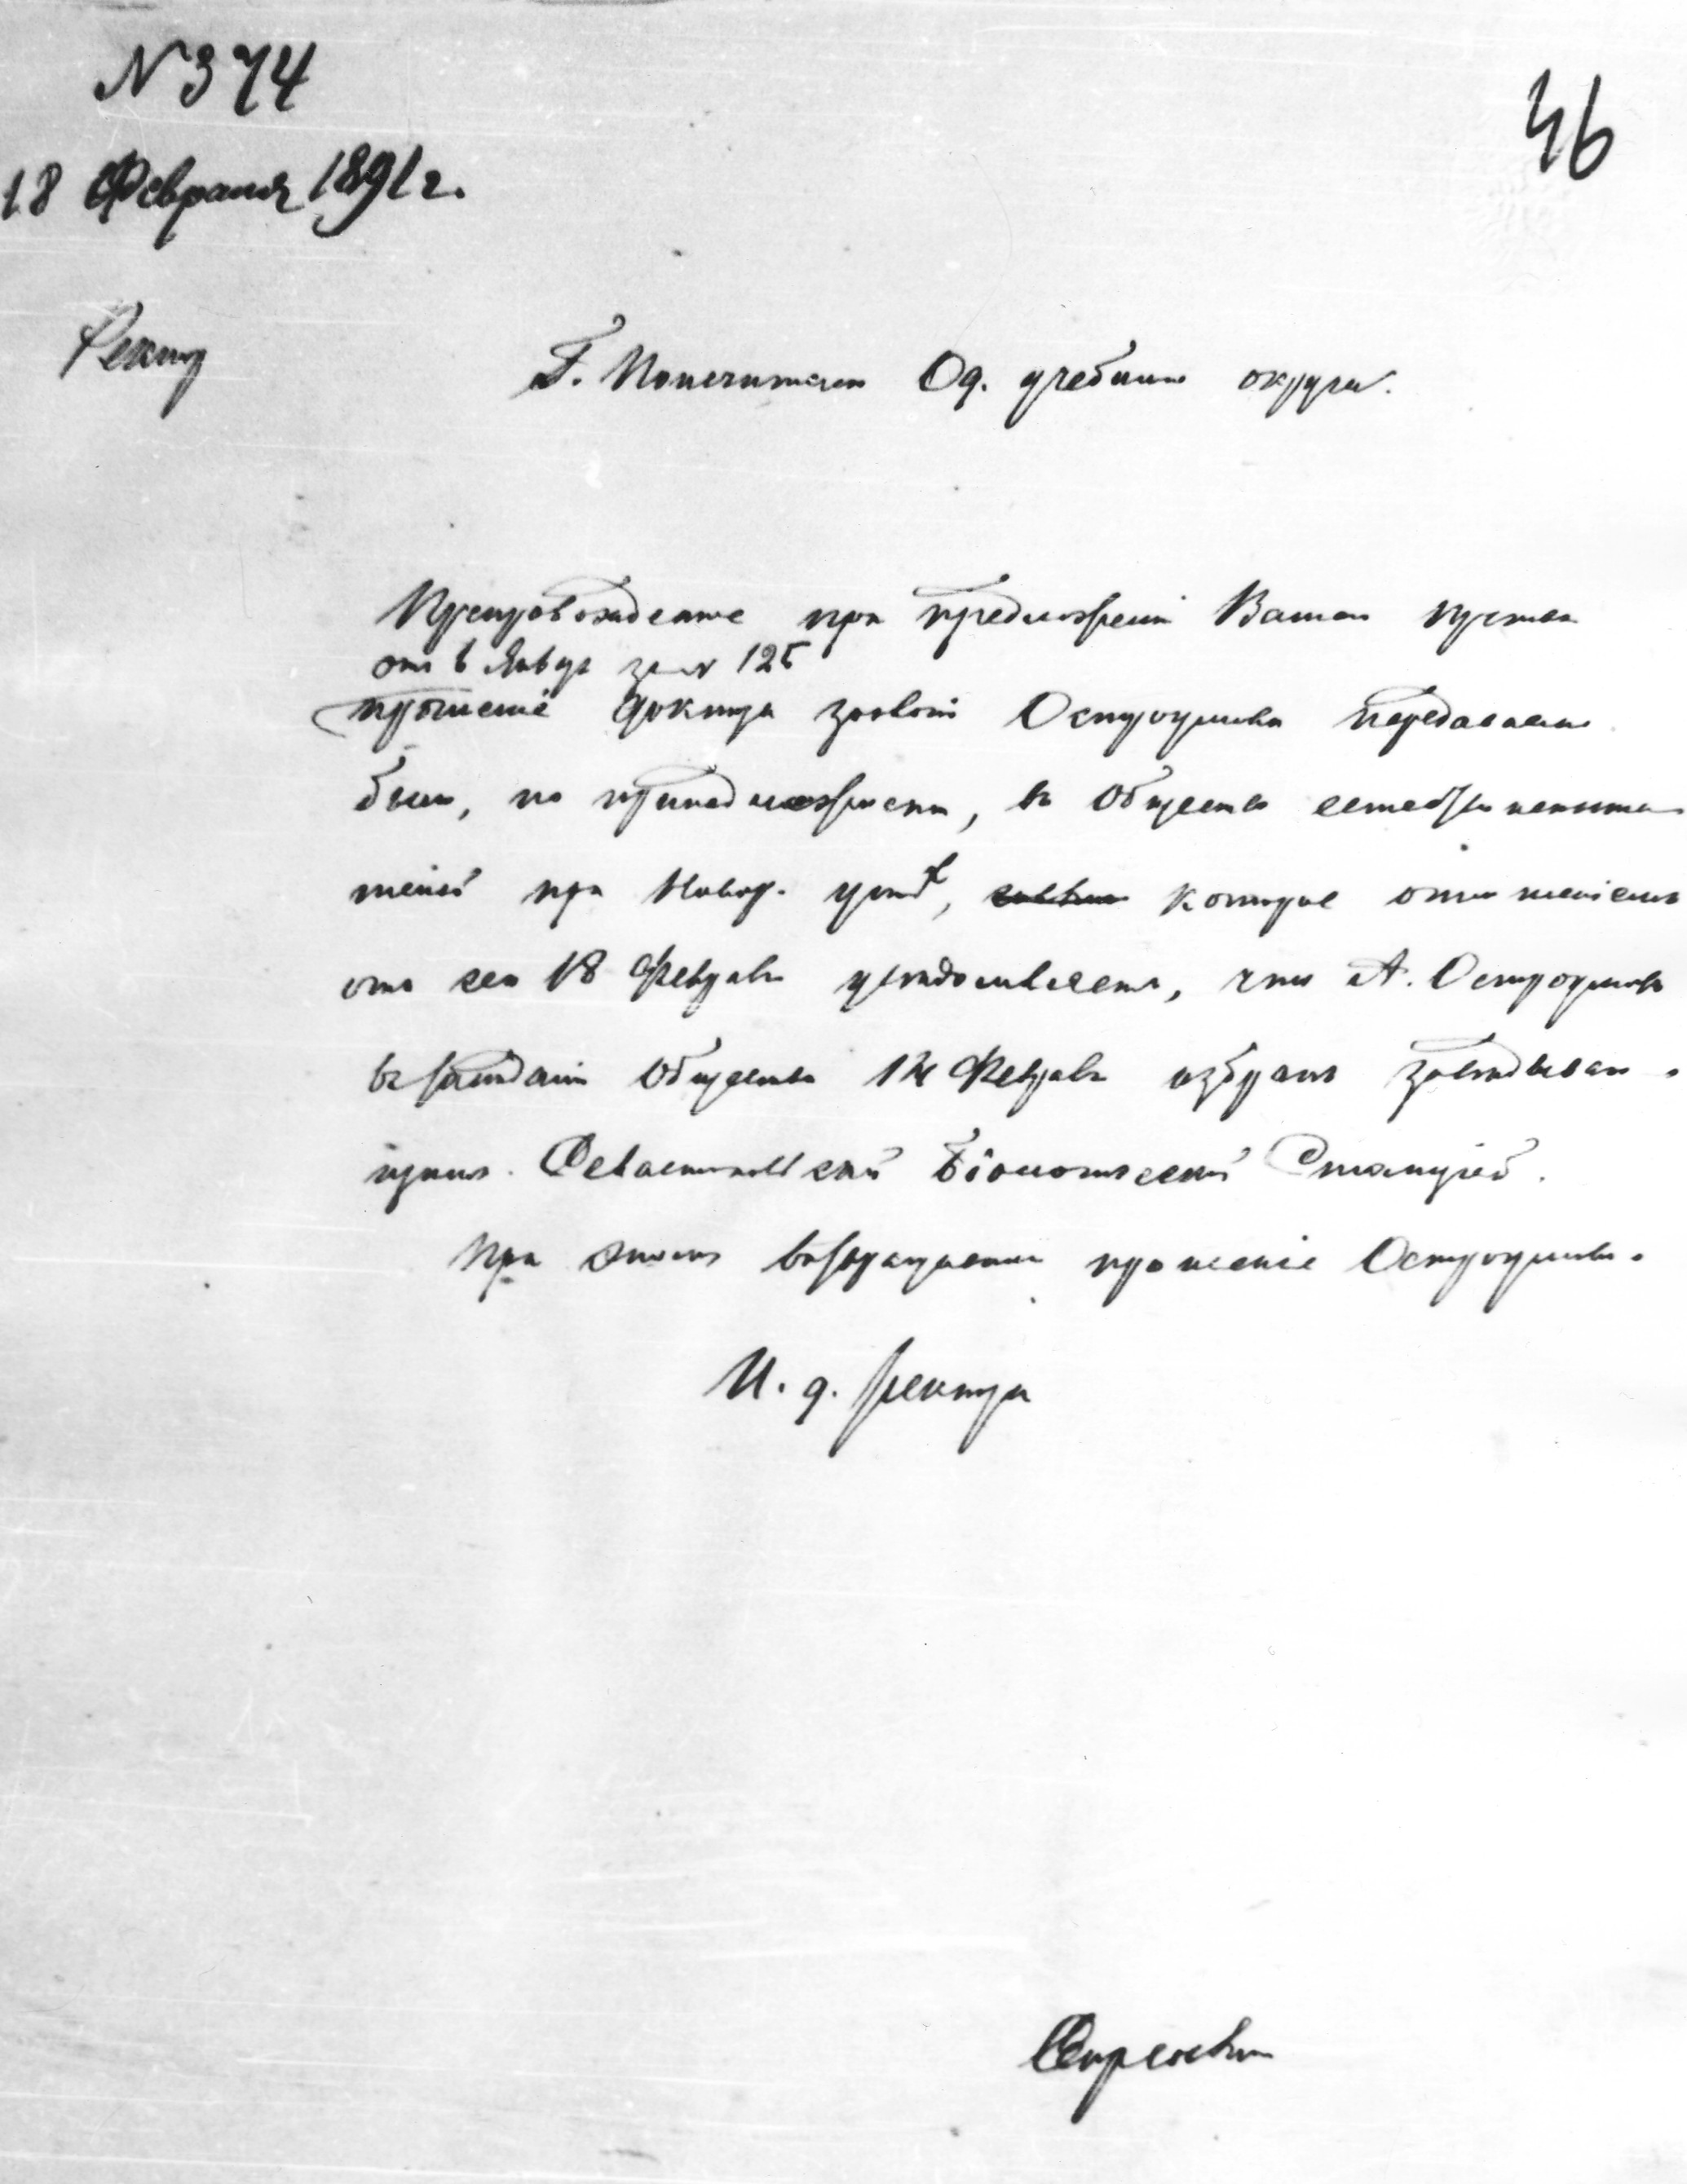 N 374
46
18 Февраля 1891 г.
Ректор
Г. Попечителю Од. учебнаго округа.
Препровожденное при предложеніи Вашем
от Январ за N 125
прошеніе доктора зоологіи Остроумова передавалось
было, по принадлежности, в Общество естествоиспыта
телей при Новор. унив, которое отношеніем
от сего 18 Феврал уведомляет, что А. Остроумов
в заседаніи Общества 14 Феврал избран заведываю
щим Севастопольской Біологической Станціей.
При этом возвращается прошеніе Остроумова.
И. д. ректора